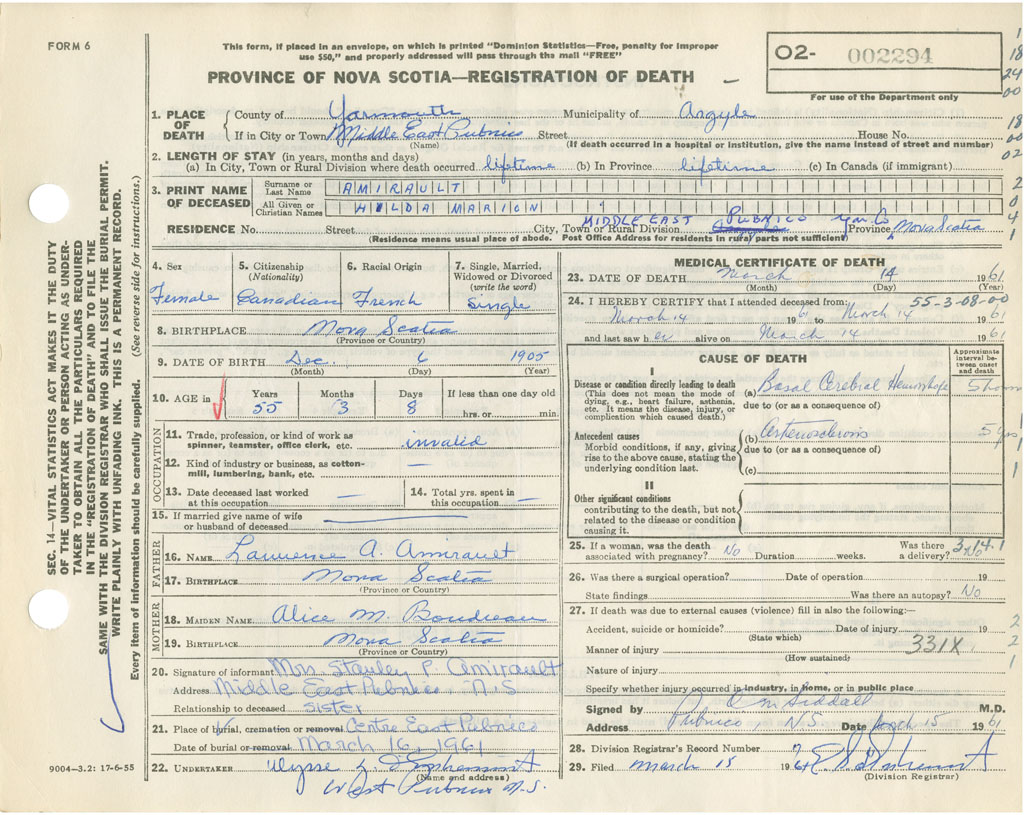 FORM 6
This form, if placed in an envelope, on which is printed "Dominion Statistics—Free, penalty for improper
use $50," and properly addressed will pass through the mail "FREE"
PROVINCE OF NOVA SCOTIA—REGISTRATION OF DEATH
O2- 002294
For use of the Department only
1. PLACE OF DEATH
County of Yarmouth Municipality of Argyle
If in City or Town Middle East Pubnico Street House No.
(Name) (If death occurred in a hospital or institution, give the name instead of street and number)
2. LENGTH OF STAY (in years, months and days)
(a) In City, Town or Rural Division where death occurred lifetime (b) In Province lifetime (c) In Canada (if immigrant)
3. PRINT NAME OF DECEASED
Surname or Last Name AMIRAULT
All Given or Christian Names HILDA MARION
RESIDENCE No. Street City, Town or Rural Division MIDDLE EAST PUBNICO Yar. Co Province Nova Scotia
(Residence means usual place of abode. Post Office Address for residents in rural parts not sufficient)
4. Sex Female
5. Citizenship (Nationality) Canadian
6. Racial Origin French
7. Single, Married, Widowed or Divorced (write the word) Single
8. BIRTHPLACE Nova Scotia
(Province or Country)
9. DATE OF BIRTH Dec. 6 1905
(Month) (Day) (Year)
10. AGE in Years 55 Months 3 Days 8 If less than one day old hrs. or min.
OCCUPATION
11. Trade, profession, or kind of work as spinner, teamster, office clerk, etc. invalid
12. Kind of industry or business, as cotton-mill, lumbering, bank, etc. —
13. Date deceased last worked at this occupation —
14. Total yrs. spent in this occupation —
15. If married give name of wife or husband of deceased —
FATHER
16. NAME Lawrence A. Amirault
17. BIRTHPLACE Nova Scotia
(Province or Country)
MOTHER
18. MAIDEN NAME Alice M. Boudreau
19. BIRTHPLACE Nova Scotia
(Province or Country)
20. Signature of informant Mrs Stanley P. Amirault
Address Middle East Pubnico, N.S
Relationship to deceased sister
21. Place of burial, cremation or removal Centre East Pubnico
Date of burial or removal March 16, 1961
22. UNDERTAKER Ulysse
(Name and address)
West Pubnico N.S.
MEDICAL CERTIFICATE OF DEATH
23. DATE OF DEATH March 14 1961
(Month) (Day) (Year)
24. I HEREBY CERTIFY that I attended deceased from: 55-3-08-00
March 14 1961 to March 14 1961
and last saw her alive on March 14 1961
CAUSE OF DEATH
Approximate interval between onset and death
I
Disease or condition directly leading to death
(This does not mean the mode of dying, e.g., heart failure, asthenia, etc. It means the disease, injury, or complication which caused death.)
(a) Basal Cerebral Hemorrhage 5 hours
due to (or as a consequence of)
Antecedent causes
Morbid conditions, if any, giving rise to the above cause, stating the underlying condition last.
(b) Arteriosclerosis 5 yrs
due to (or as a consequence of)
(c)
II
Other significant conditions
contributing to the death, but not related to the disease or condition causing it.
25. If a woman, was the death associated with pregnancy? No Duration weeks. Was there a delivery? No 3.14.1
26. Was there a surgical operation? Date of operation 19
State findings Was there an autopsy? No
27. If death was due to external causes (violence) fill in also the following:—
Accident, suicide or homicide? Date of injury 19
(State which)
Manner of injury 331X
(How sustained)
Nature of injury
Specify whether injury occurred in industry, in home, or in public place
Signed by Siddall M.D.
Address Pubnico N.S. Date March 15 1961
28. Division Registrar's Record Number 7
29. Filed March 15 196
(Division Registrar)
SEC. 14—VITAL STATISTICS ACT MAKES IT THE DUTY
OF THE UNDERTAKER OR PERSON ACTING AS UNDER-
TAKER TO OBTAIN ALL THE PARTICULARS REQUIRED
IN THE "REGISTRATION OF DEATH" AND TO FILE THE
SAME WITH THE DIVISION REGISTRAR WHO SHALL ISSUE THE BURIAL PERMIT.
WRITE PLAINLY WITH UNFADING INK. THIS IS A PERMANENT RECORD.
Every item of information should be carefully supplied. (See reverse side for instructions.)
9004-3.2: 17-6-55